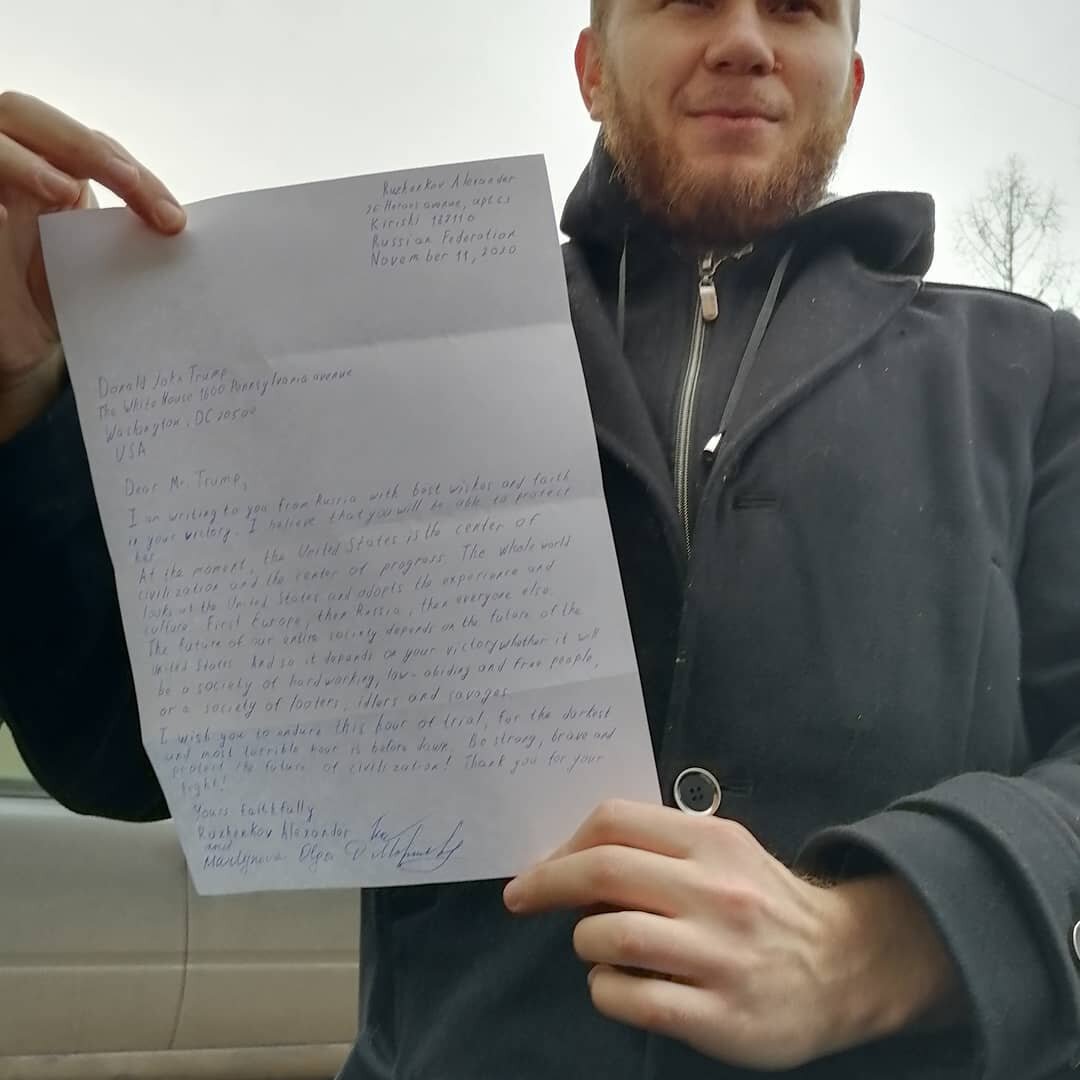 Ruzhenkov Alexander
26 Heroes avenue, apt 63
Kirishi 187110
Russian Federation
November 11, 2020
Donald John Trump
The White House 1600 Pennsylvania avenue
Washington, DC 20500
USA
Dear Mr. Trump,
I am writing to you from Russia with best wishes and faith
in your victory. I believe that you will be able to protect
her.
At the moment, the United States is the center of
civilization and the center of progress. The whole world
looks at the United States and adopts the experience and
culture. First Europe, then Russia, then everyone else.
The future of our entire society depends on the future of the
United States. And so it depends on your victory whether it will
be a society of hardworking, law-abiding and free people,
or a society of looters, idlers and savages.
I wish you to endure this hour of trial, for the darkest
and most terrible hour is before dawn. Be strong, brave and
protect the future of civilization! Thank you for your
fight!
Yours faithfully
Ruzhenkov Alexander
and
Martynova Olga